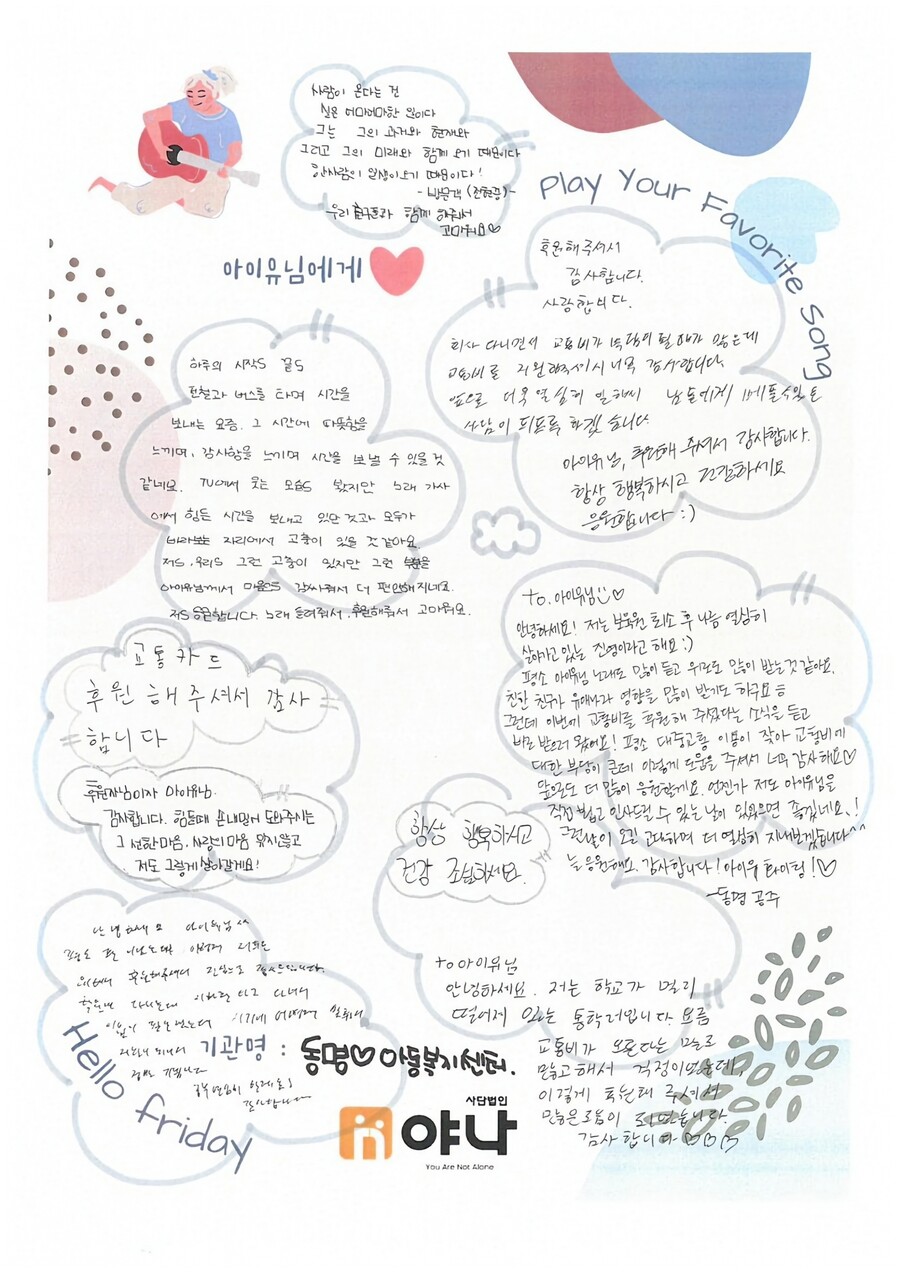 사람이 온다는 건
실은 어마어마한 일이다
그는 그의 과거와 현재와
그리고 그의 미래와 함께 오기 때문이다
한사람의 일생이 오기 때문이다!
우리 친구들과 함께 해주셔서
고마워요♡
Play Your Favorite Song
아이유님에게
후원해주셔서
감사합니다.
사랑합니다.
회사 다니면서 교통비가 부담이 될 때가 많은데
교통비를 지원해주셔서 너무 감사합니다.
앞으로 더욱 열심히 일해서 남들에게 베풀수있는
사람이 되도록 하겠습니다.
아이유님, 후원해 주셔서 감사합니다.
항상 행복하시고 건강하세요
응원합니다 :)
하루의 시작도 끝도
전철과 버스를 타며 시간을
보내는 요즘. 그 시간에 따뜻함을
느끼며, 감사함을 느끼며 시간을 보낼 수 있을 것
같네요. TV에서 웃는 모습도 봤지만 노래 가사
에서 힘든 시간을 보내고 있단 것과 모두가
바라보는 자리에서 고충이 있을 것 같아요
저도, 우리도 그런 고충이 있지만 그런
아이유님께서 마음도 감싸줘서 더 편안해지네요.
저도 응원합니다. 노래 들려줘서, 후원해줘서 고마워요.
to. 아이유님♡
안녕하세요! 저는 보육원 퇴소 후 나름 열심히
살아가고 있는 진영이라고 해요:)
평소 아이유님 노래도 많이 듣고 위로도 많이 받는것 같아요.
친한 친구가 유애나라 영향을 많이 받기도 하구요ㅎ
그런데 이번에 교통비를 후원해 주셨다는 소식을 듣고
바로 받으러 왔어요! 평소 대중교통 이용이 잦아 교통비에
대한 부담이 큰데 이렇게 도움을 주셔서 너무 감사해요♡
앞으로도 더 많이 응원할게요. 언젠가 저도 아이유님을
직접 뵙고 인사드릴 수 있는 날이 있으면 좋겠네요.!
그런날이 오길 고대하며 더 열심히 지내보겠습니다^^
늘 응원해요. 감사합니다! 아이유 화이팅!♡
-동명 공주
교통카드
후원 해주셔서 감사
합니다
후원자님이자 아이유님.
감사합니다. 힘들때 손내밀어 도와주시는
그 선한마음. 사랑의 마음 잊지않고
저도 그렇게 살아갈게요!
항상 행복하시고
건강 조심하세요.
안녕하세요 아이유님^^
to 아이유님
안녕하세요. 저는 학교가 멀리
떨어져 있는 통학러입니다. 요즘
교통비가 오른다는 말도
많고해서 걱정이었는데,
이렇게 후원해 주셔서
많은 도움이 되었습니다.
감사합니다♡♡♡
Hello friday
기관명 : 동명♡아동복지센터.
사단법인
야나
You Are Not Alone